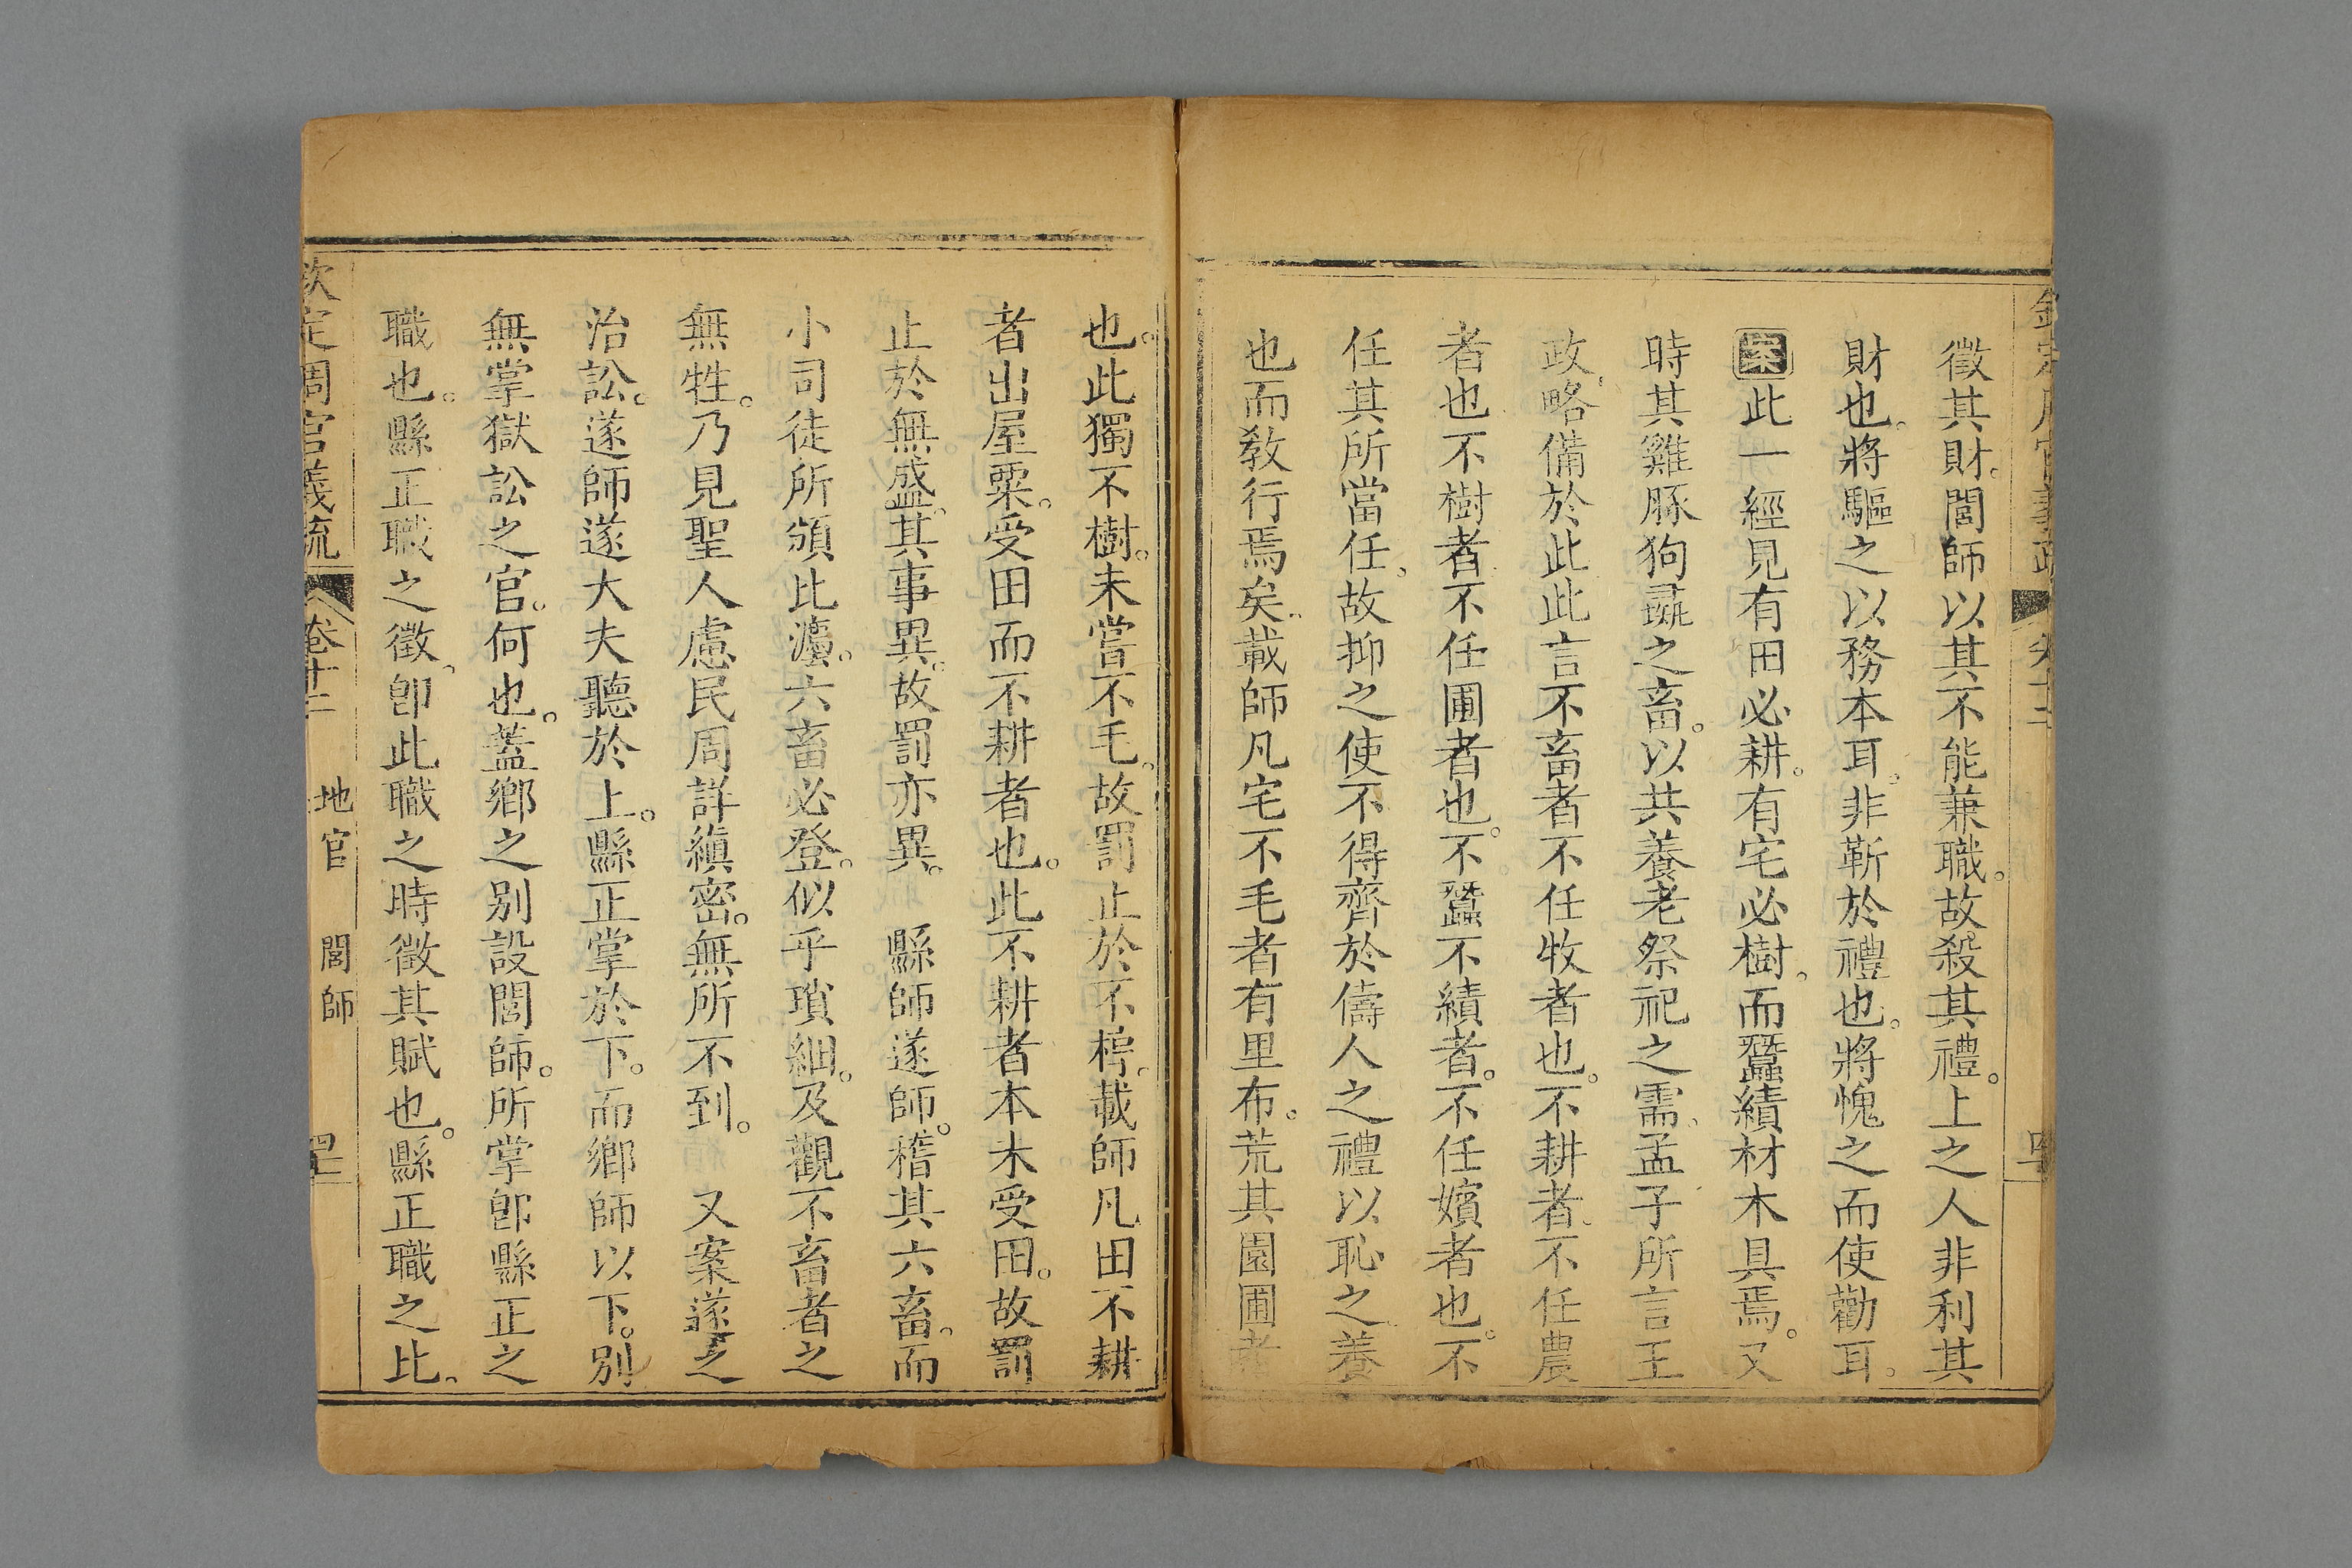 徵其財。閭師以其不能兼職。故殺其禮。上之人非利其
財也。將驅之以務本耳。非靳於禮也。將愧之而使勸耳。
案此一經見有田必耕。有宅必樹。而蠶績材木具焉。又
時其雞豚狗彘之畜。以共養老祭祀之需。孟子所言王
政。略備於此此言不畜者不任牧者也。不耕者。不任農
者也不樹者不任圃者也。不蠶不績者。不任嬪者也。不
任其所當任。故抑之使不得齊於儔人之禮以恥之養
也而敎行焉矣。載師凡宅不毛者有里布。荒其園圃者
也。此獨不樹。未嘗不毛。故罰止於不槨。載師凡田不耕
者出屋粟。受田而不耕者也。此不耕者本未受田。故罰
止於無盛。其事異。故罰亦異。 縣師遂師。稽其六畜。而
小司徒所頒比灋。六畜必登。似乎瑣細。及觀不畜者之
無牲。乃見聖人慮民周詳縝密。無所不到。 又案遂之
治訟。遂師遂大夫聽於上。縣正掌於下。而鄉師以下。別
無掌獄訟之官。何也。蓋鄉之別設閭師。所掌卽縣正之
職也。縣正職之徵。卽此職之時徵其賦也。縣正職之比。
欽定周官義疏 卷十二 地官 閭師